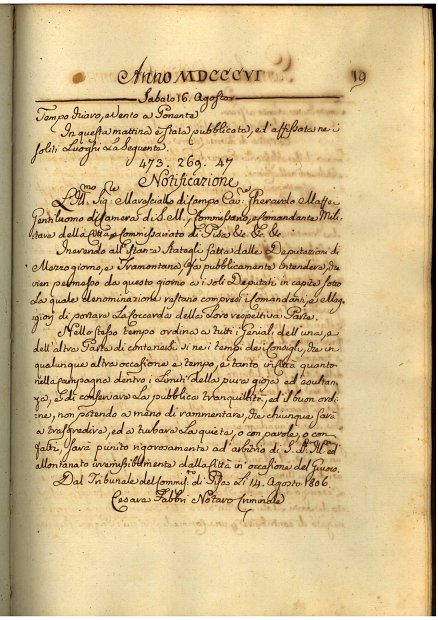 Anno MDCCCVI
19
Sabato 16. Agosto
Tempo Chiaro, e Vento a Ponente
In questa mattina è stata pubblicata, ed affissata ne i
soliti Luoghi la Seguente
473. 269. 47
Notificazione
L'Ill.mo Sig.re Maresciallo di Campo Cav.re Gherardo Maffei
Gentiluomo di Camera di S. M., Commissario, e Comandante Mili-
tare della Città, e Commissariato di Pisa &c. &c. &c.
Inerendo all'Istanza Statagli fatta dalle Deputazioni di
Mezzo giorno, e Tramontana fa pubblicamente intendere, che
vien permesso da questo giorno a i soli Deputati in capite sotto
la quale denominazione restano compresi i Comandanti, e Mag-
giori di portare la Coccarda della Loro respettiva Parte.
Nello stesso tempo ordina a tutti i Geniali dell'una, e
dell'altra Parte di contenersi sì ne i tempi dei Consigli, che in
qualunque altra occasione e tempo, e tanto in Città quanto
nella Campagna dentro i Limiti della pura gioja ed esultan-
za, e di conservare la pubblica tranquillità, ed il buon ordi-
ne, non potendo a meno di rammentare, che chiunque sarà
a trasgredire, ed a turbare la quiete, o con parole, o con
fatti, sarà punito rigorosamente ad arbitrio di S. S. Ill. ed
allontanato irremissibilmente dalla Città in occasione del Giuoco.
Dal Tribunale del Commis.to di Pisa Li 14. Agosto 1806
Cesare Fabbri Notaro Criminale